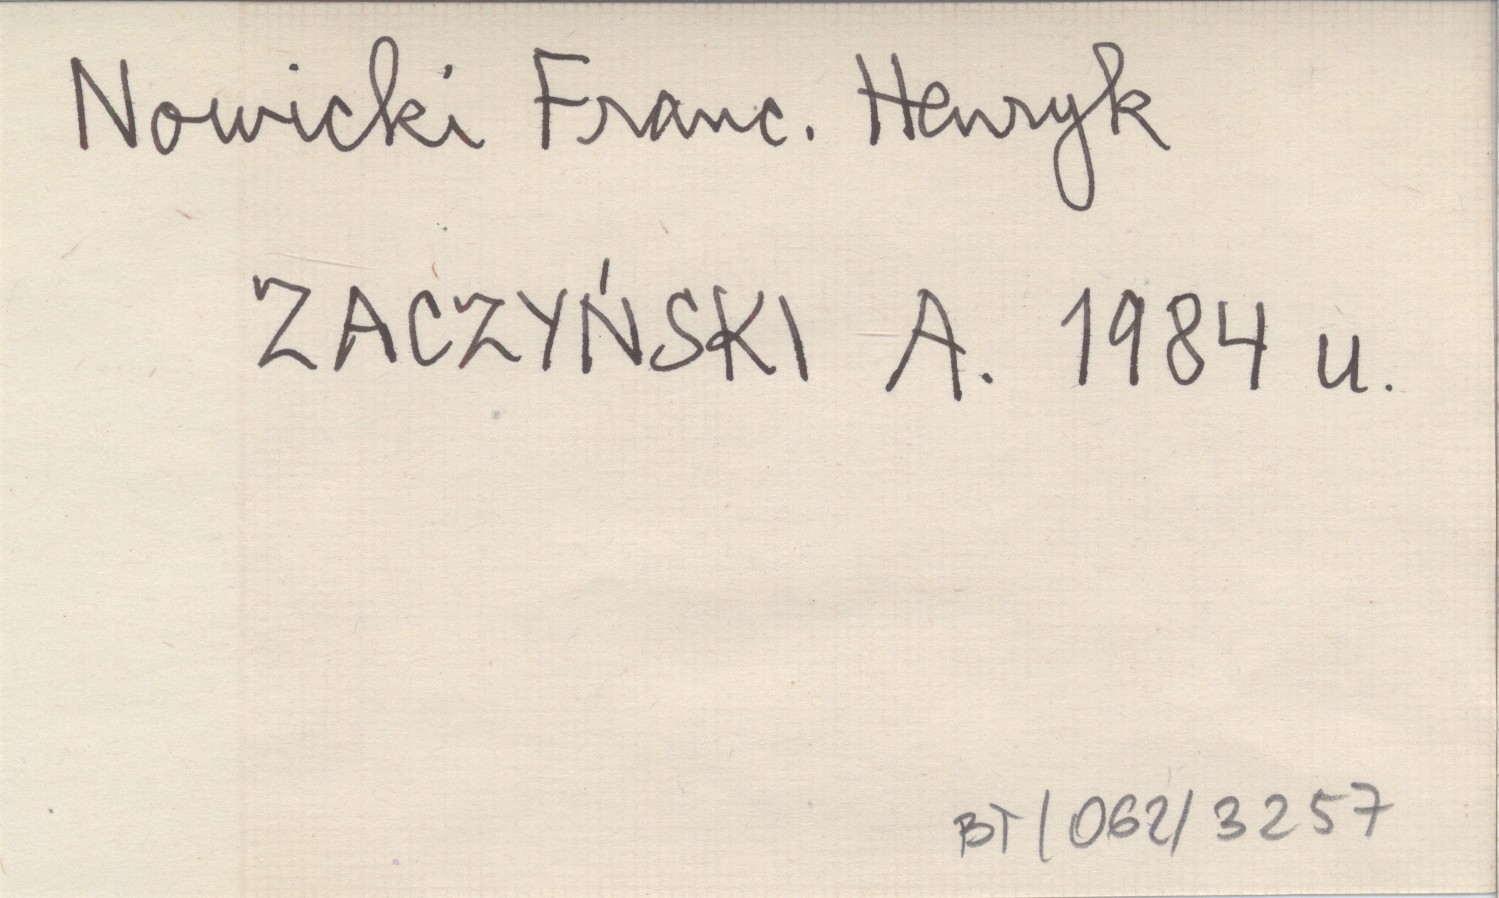 Nowicki Franc. Henryk
ZACZYŃSKI A. 1984 u.
BT/062/3257